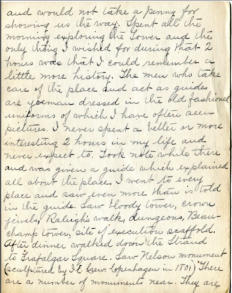 and would not take a penny for
showing us the way. Spent all the
morning exploring the Tower and the
only thing I wished for during that 2
hours was that I could remember a
little more history. The men who take
care of the place and act as guides
are yeoman dressed in the old fashioned
uniforms of which I have often seen
pictures. I never spent a better or more
interesting 2 hours in my life and
never expect to. Took note while there
and was given a guide which explained
all about the place. Went to every
place and saw even more than is told
in the guide. Saw bloody tower, crown
jewels, Raleigh's walk, dungeons, Beau-
champ tower, site of execution scaffold.
After dinner walked down the Strand
to Trafalgar Square. Saw Nelson monument
(sculptured by Copenhagen in 1801) There
are a number of monuments near. They are